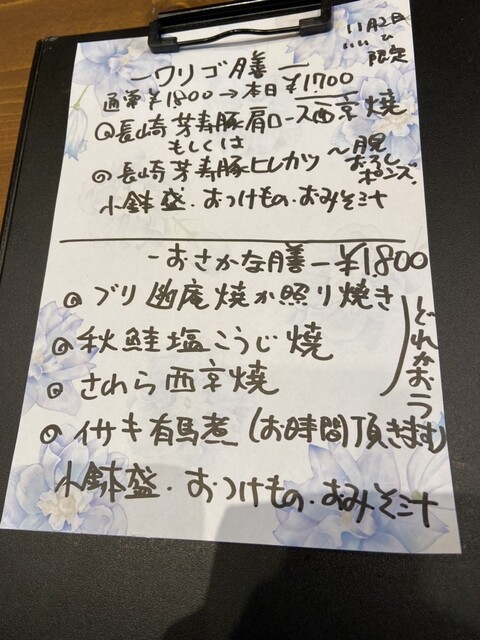 11月2日
いい日
限定
ーワリゴ膳ー
通常¥1,800→本日¥1,700
◎長崎芳寿豚肩ロース西京焼
もしくは
◎長崎芳寿豚ヒレカツ
〜月見おろしポンズ
小鉢盛・おつけもの・おみそ汁
ーおさかな膳ー¥1,800
◎ブリ幽庵焼か照り焼き
◎秋鮭塩こうじ焼
◎さわら西京焼
◎イサキ有馬煮(お時間頂きます)
どれか
小鉢盛・おつけもの・おみそ汁